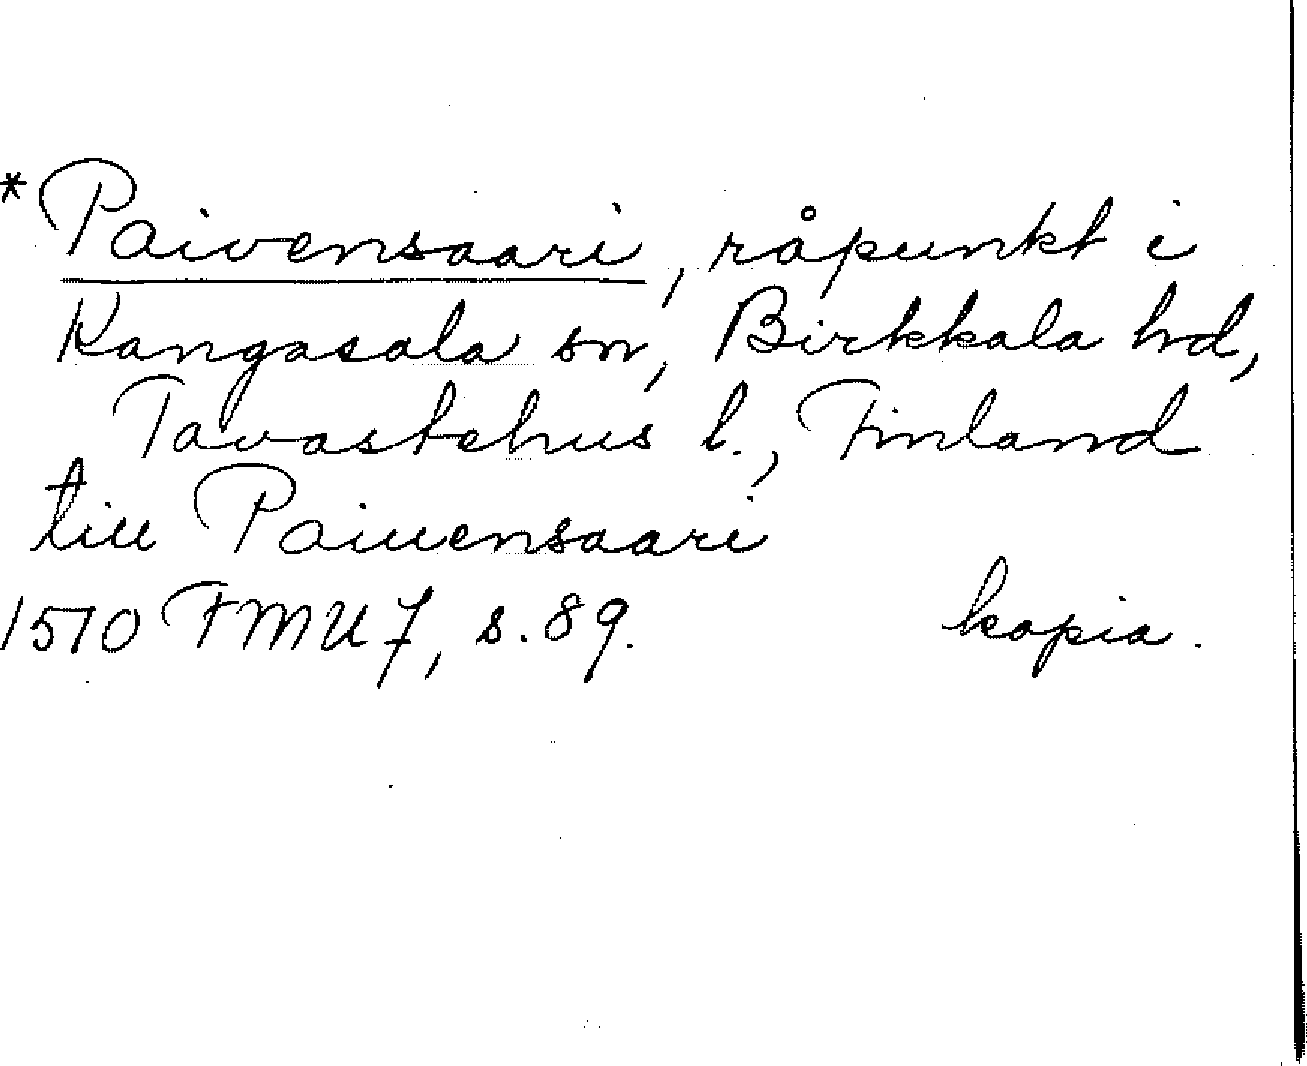 *Paivensaari, råpunkt i
Kangasala sn, Birkkala hd,
Tavastehus l., Finland
till Paiuensaari
1510 FMU 7, s. 89. kopia.